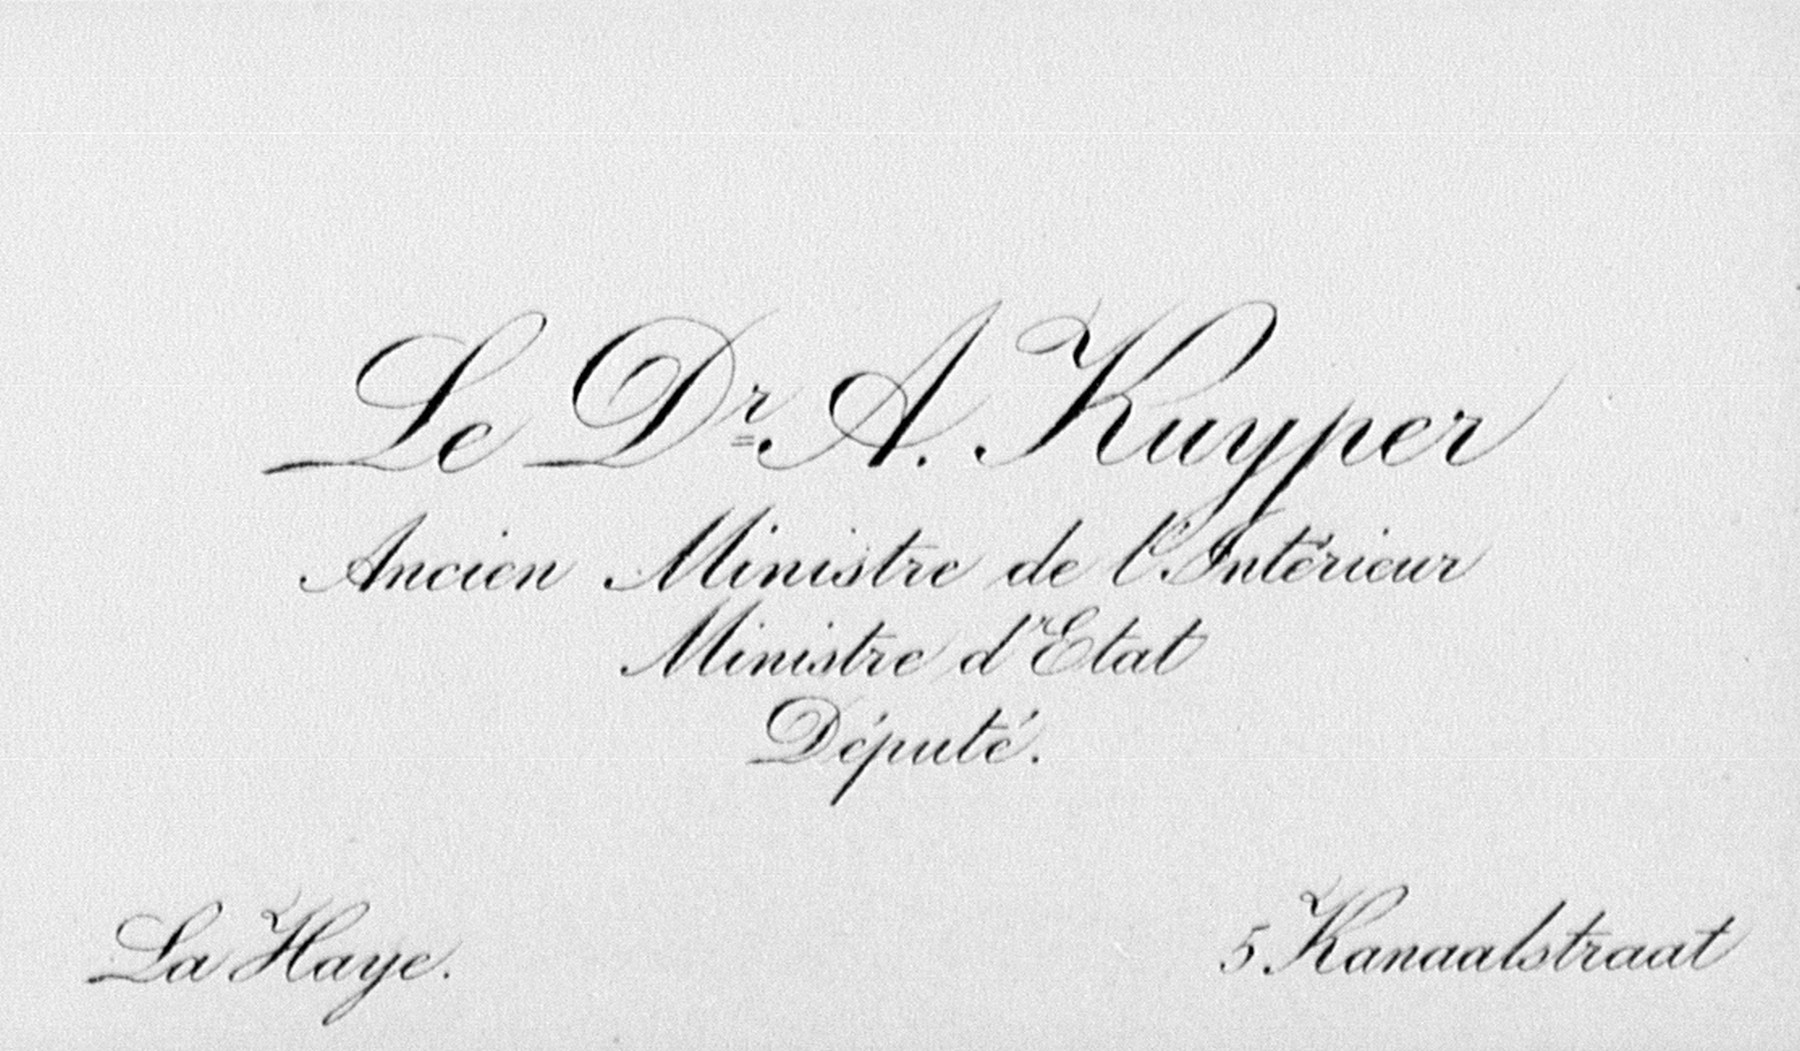 Le Dr. A. Kuyper
Ancien Ministre de l'Intérieur
Ministre d'Etat
Député.
La Haye.
5 Kanaalstraat